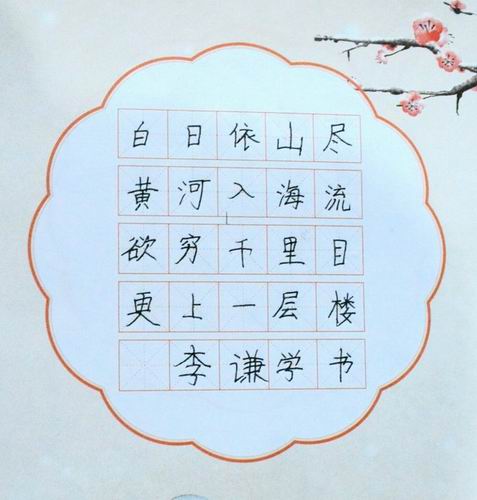 白日依山尽
黄河入海流
欲穷千里目
更上一层楼
李谦学书